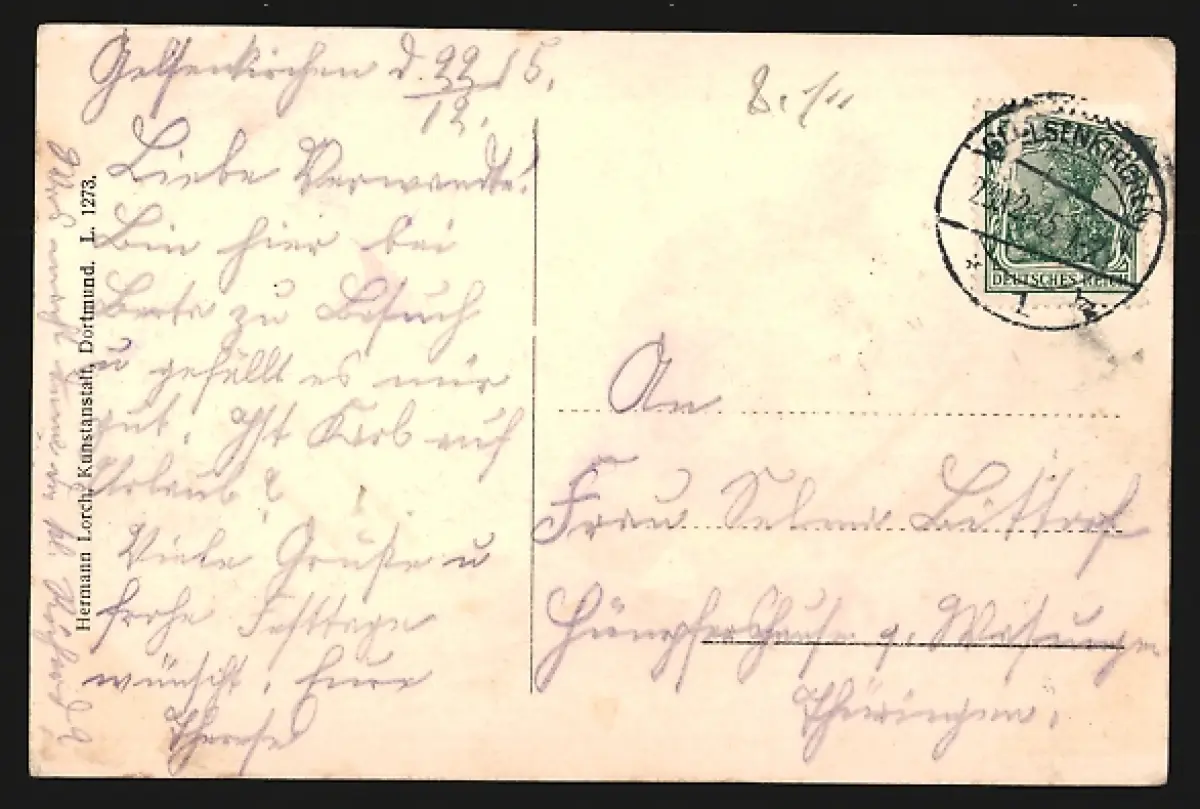 Gelsenkirchen d. 22/12. 15.
Liebe Verwandte!
Bin hier bei
Berta zu Besuch
u gefällt es mir
gut. Ist Karl auf
Urlaub?
Viele Grüße u
frohe Festtage
wünscht, Eure
Therese
Hermann Lorch, Kunstanstalt, Dortmund. L. 1273.
8. 1/11
GELSENKIRCHEN
22.12.15. 1-2
* 1 *
DEUTSCHES REICH
An
Frau Selma Bittorf
Hümpfershausen b. Wasungen
Thüringen.